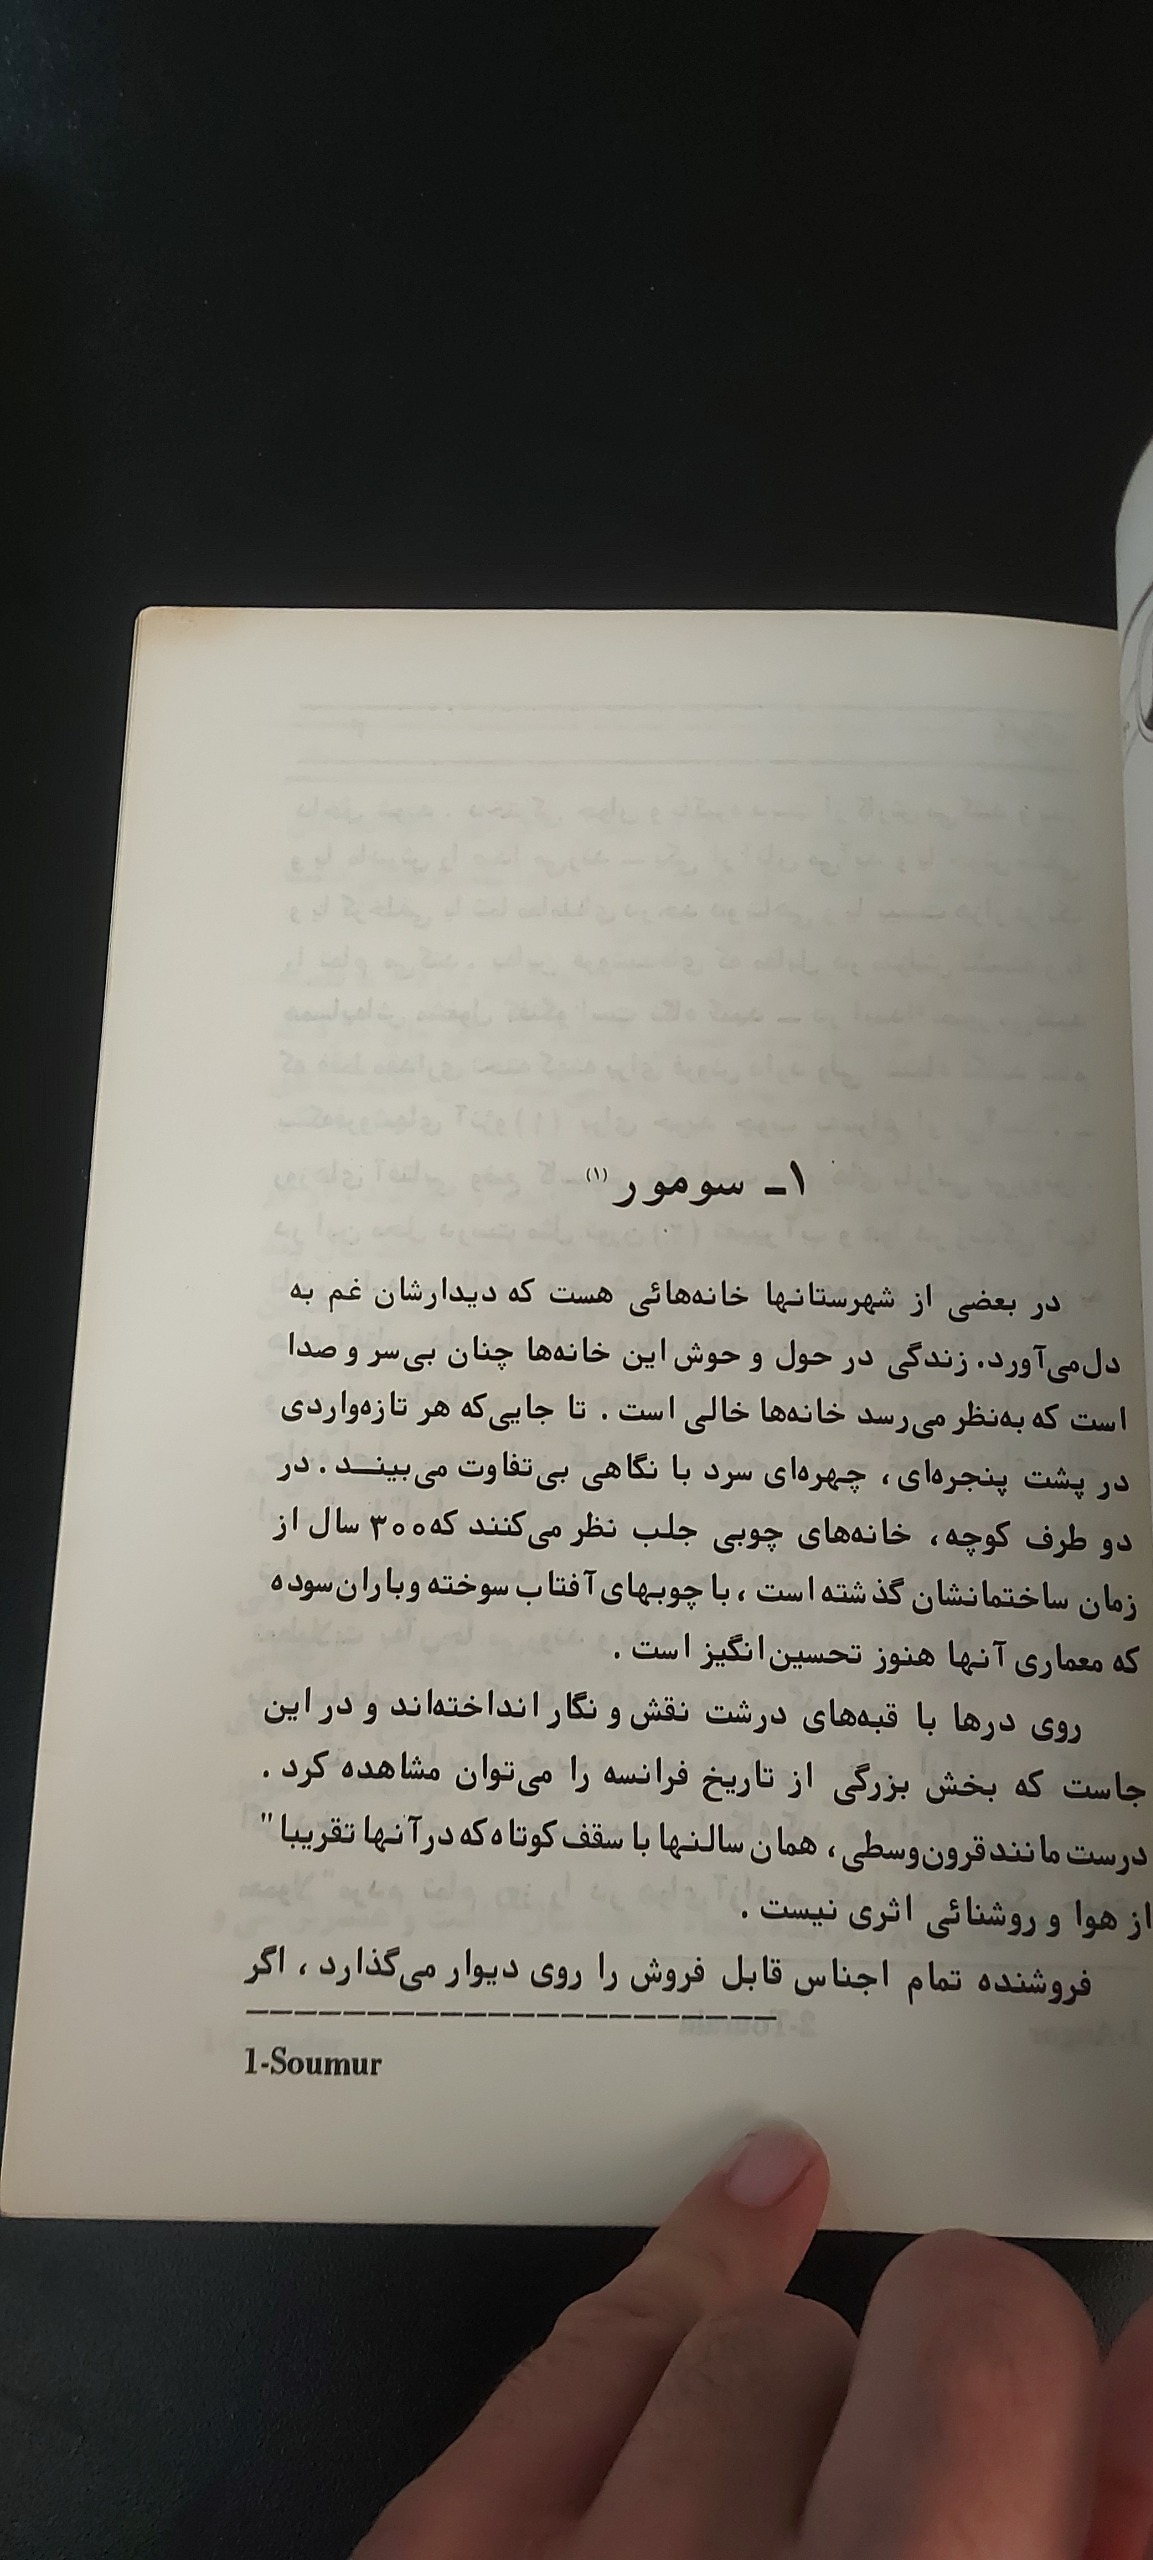 ۱ـ سومور (۱)
در بعضی از شهرستانها خانه‌هائی هست که دیدارشان غم به
دل می‌آورد. زندگی در حول و حوش این خانه‌ها چنان بی‌سر و صدا
است که به‌نظر می‌رسد خانه‌ها خالی است . تا جایی‌که هر تازه‌واردی
در پشت پنجره‌ای ، چهره‌ای سرد با نگاهی بی‌تفاوت می‌بینـد . در
دو طرف کوچه ، خانه‌های چوبی جلب نظر می‌کنند که ۳۰۰ سال از
زمان ساختمانشان گذشته است ، با چوبهای آفتاب سوخته و باران سوده
که معماری آنها هنوز تحسین‌انگیز است .
روی درها با قبه‌های درشت نقش و نگار انداخته‌اند و در این
جاست که بخش بزرگی از تاریخ فرانسه را می‌توان مشاهده کرد .
درست مانند قرون‌وسطی ، همان سالنها با سقف کوتاه که در آنها تقریبا"
از هوا و روشنائی اثری نیست .
فروشنده تمام اجناس قابل فروش را روی دیوار می‌گذارد ، اگر
1-Soumur